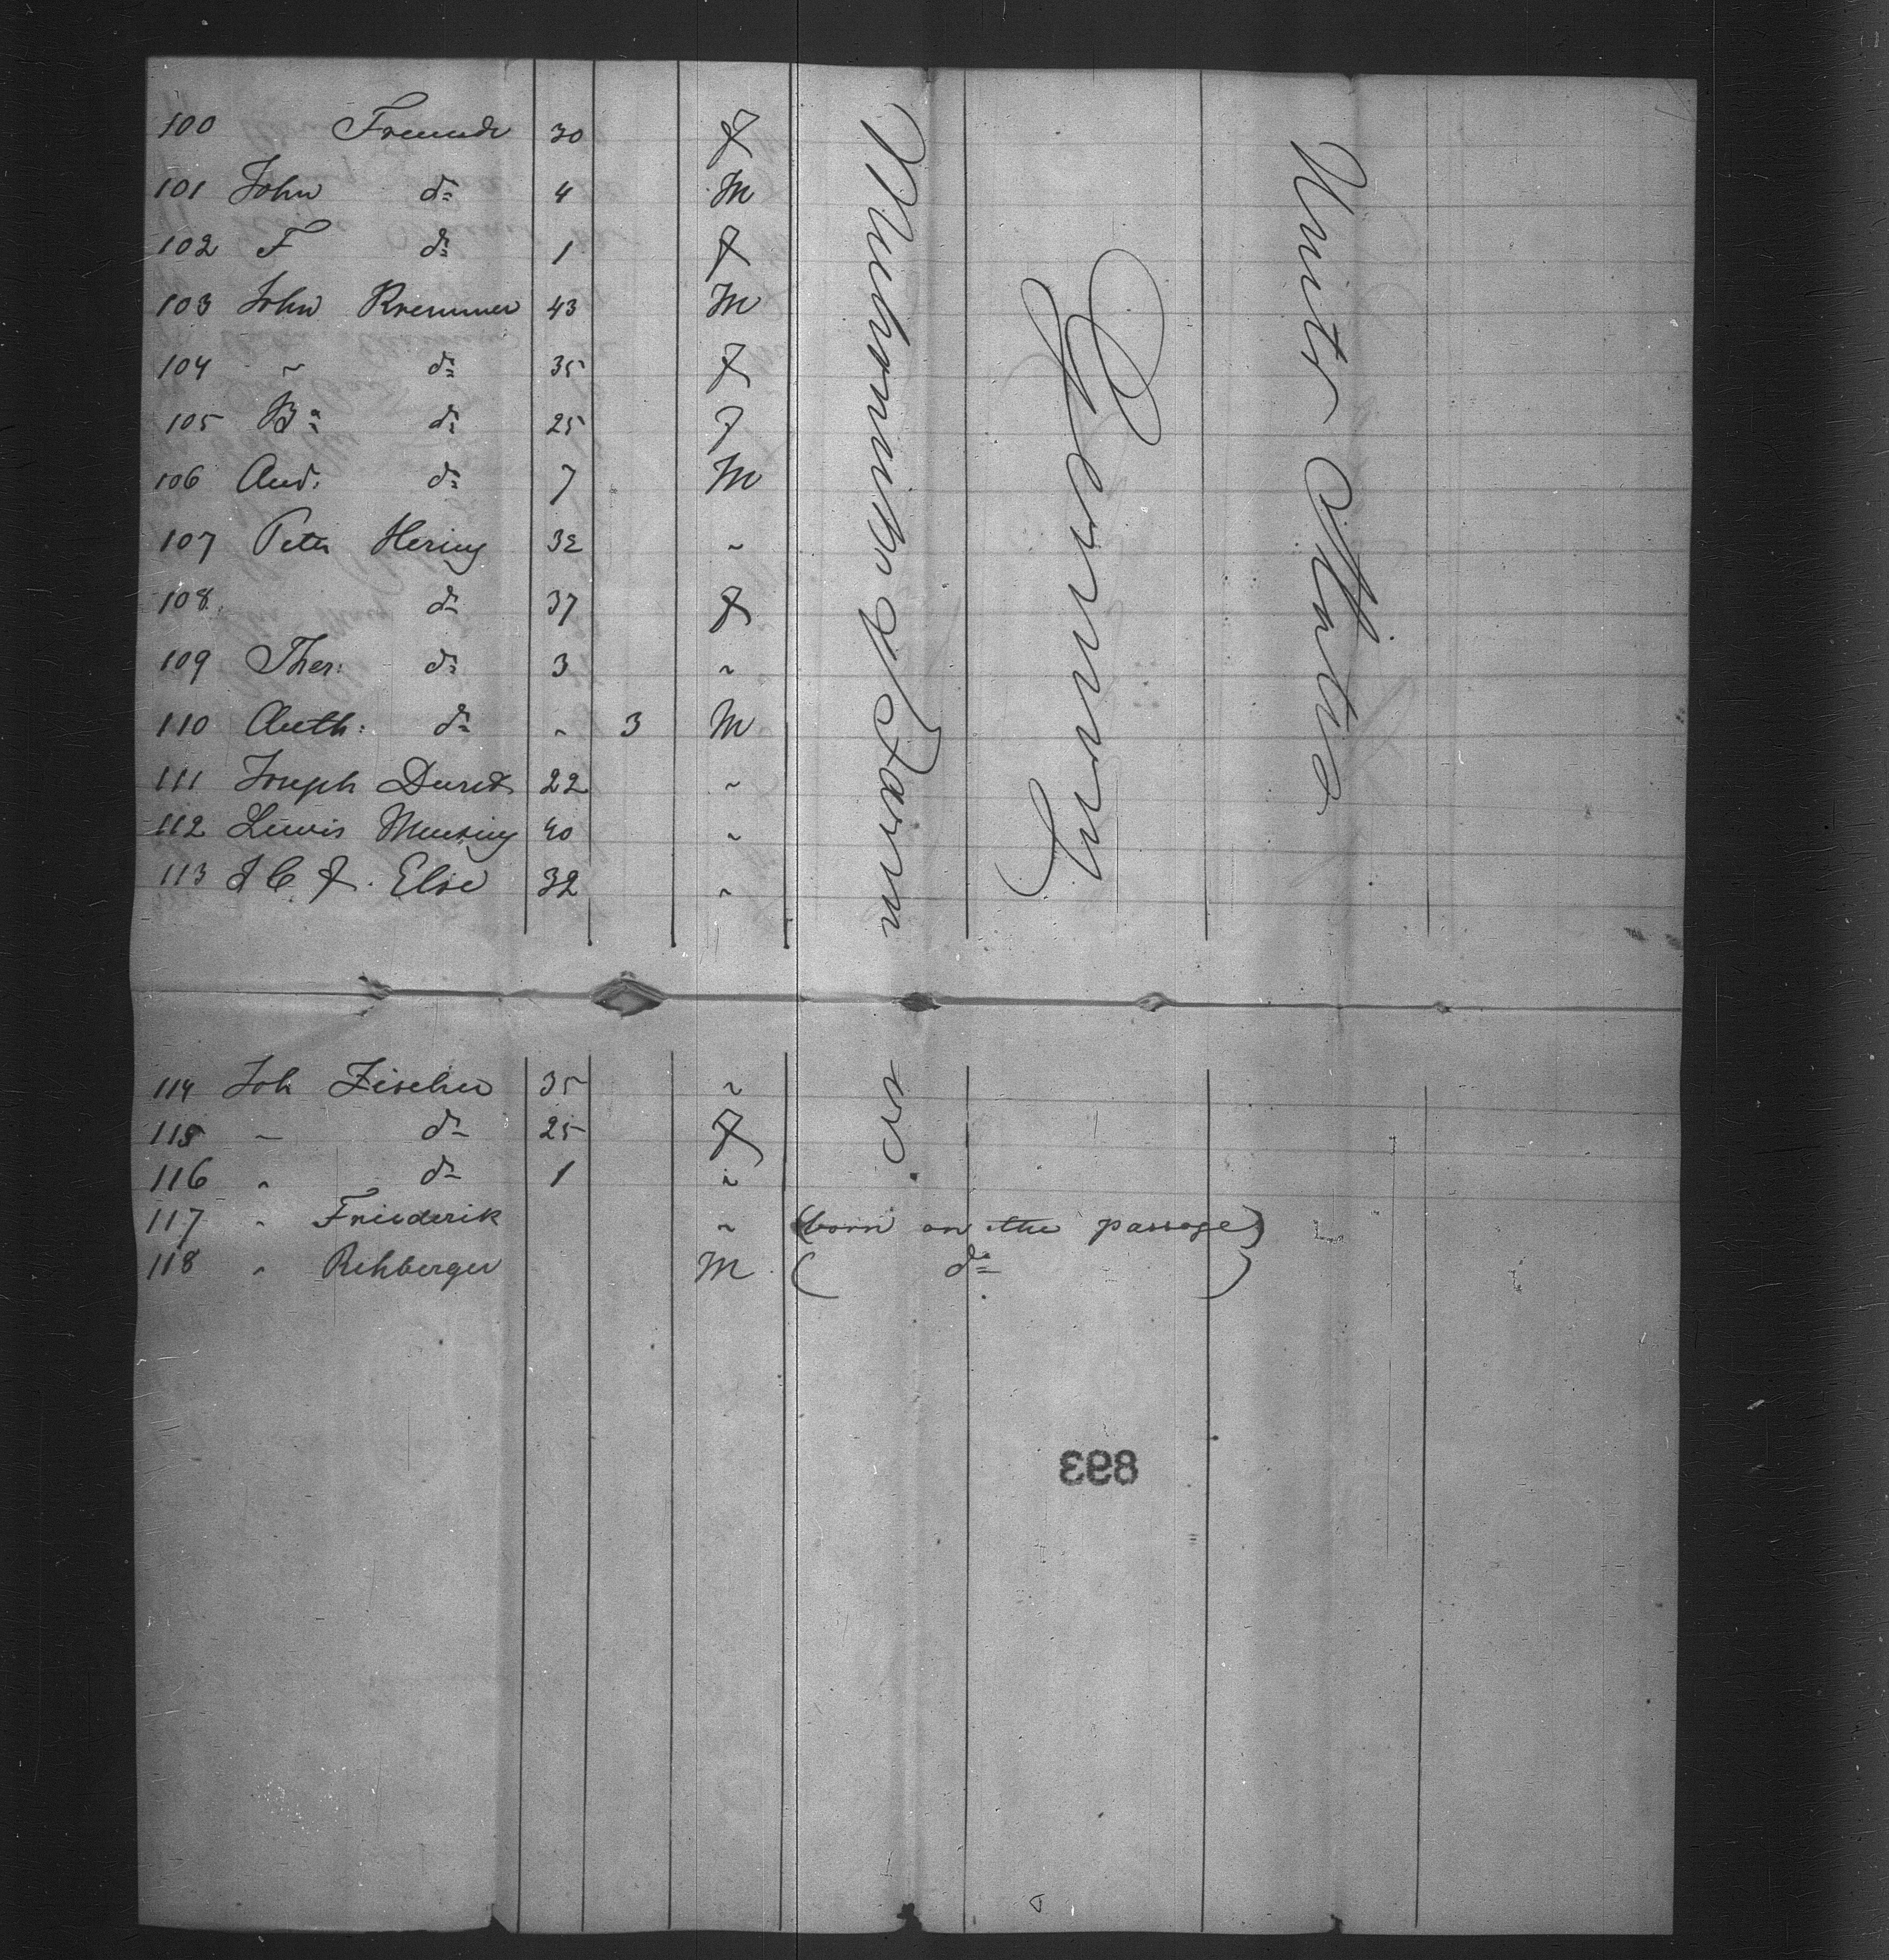 100 Freunde 30 f
101 John do 4 M
102 F do 1 f
103 John Kremmer 43 M
104 " do 35 f
105 Ba do 25 f
106 And. do 7 M
107 Peter Hering 32 "
108 do 37 f
109 Ther: do 3 "
110 Anth: do " 3 M
111 Joseph 22 "
112 Lewis 40 "
113 J C F. Else 32 "
Workman or Farmer
Germany
Unit States
114 Joh Fischer 35 "
115 " do 25 f
116 " do 1 "
117 " Friederik " (born on the passage)
118 " Rehberger M ( do )
893